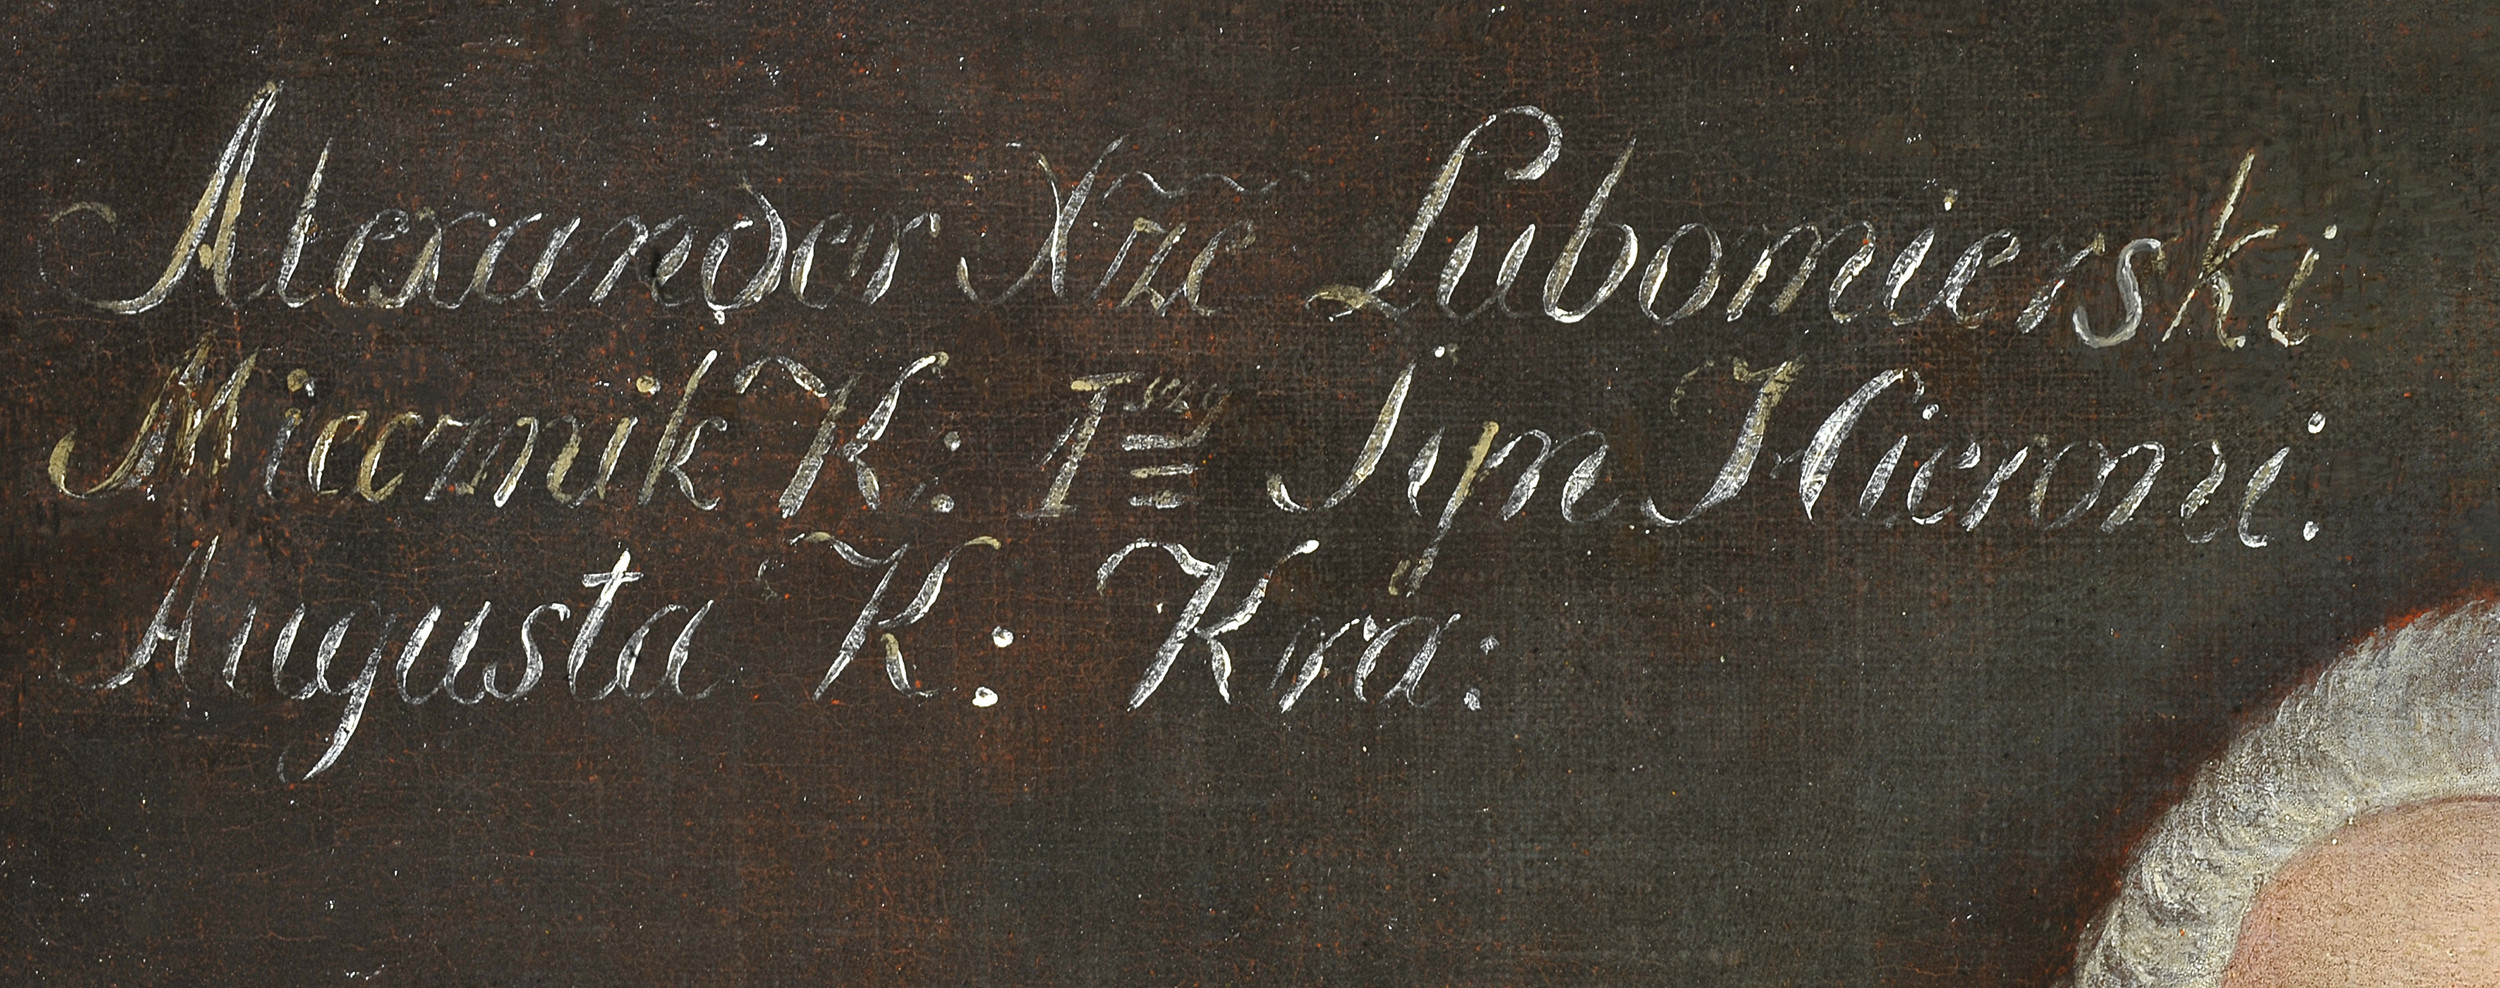 Alexander Xże Lubomierski
Miecznik K: I<sup>szy</sup> Syn Hieroni.
Augusta K: Kra: